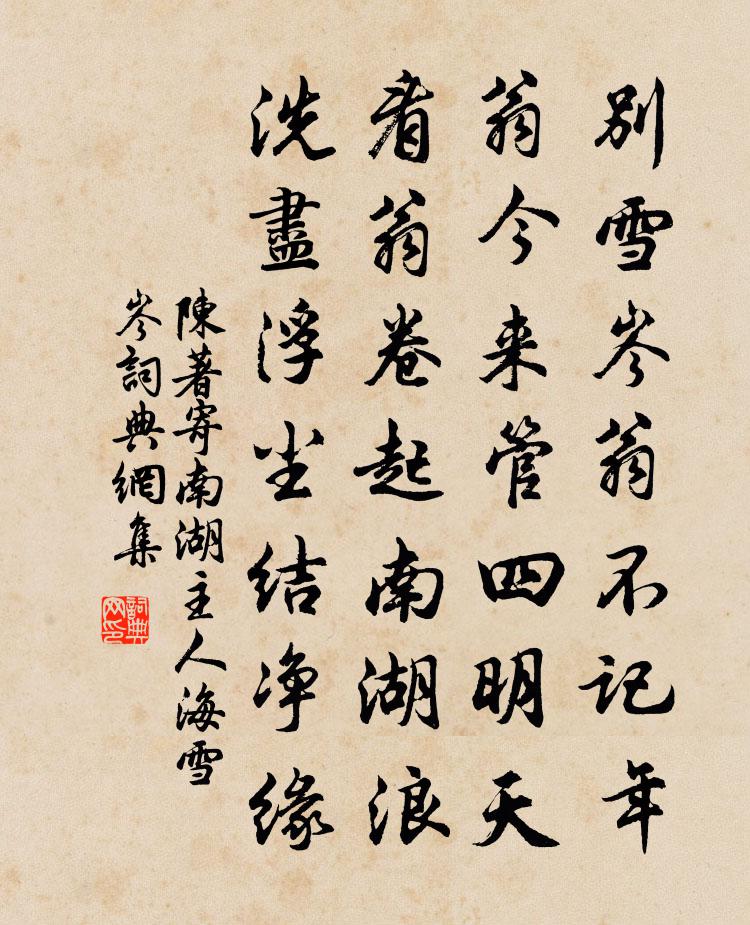 別雪岑翁不记年
翁今来管四明天
看翁卷起南湖浪
洗盡浮尘结净缘
陳著寄南湖主人海雪
岑詞典網集
詞典
网印